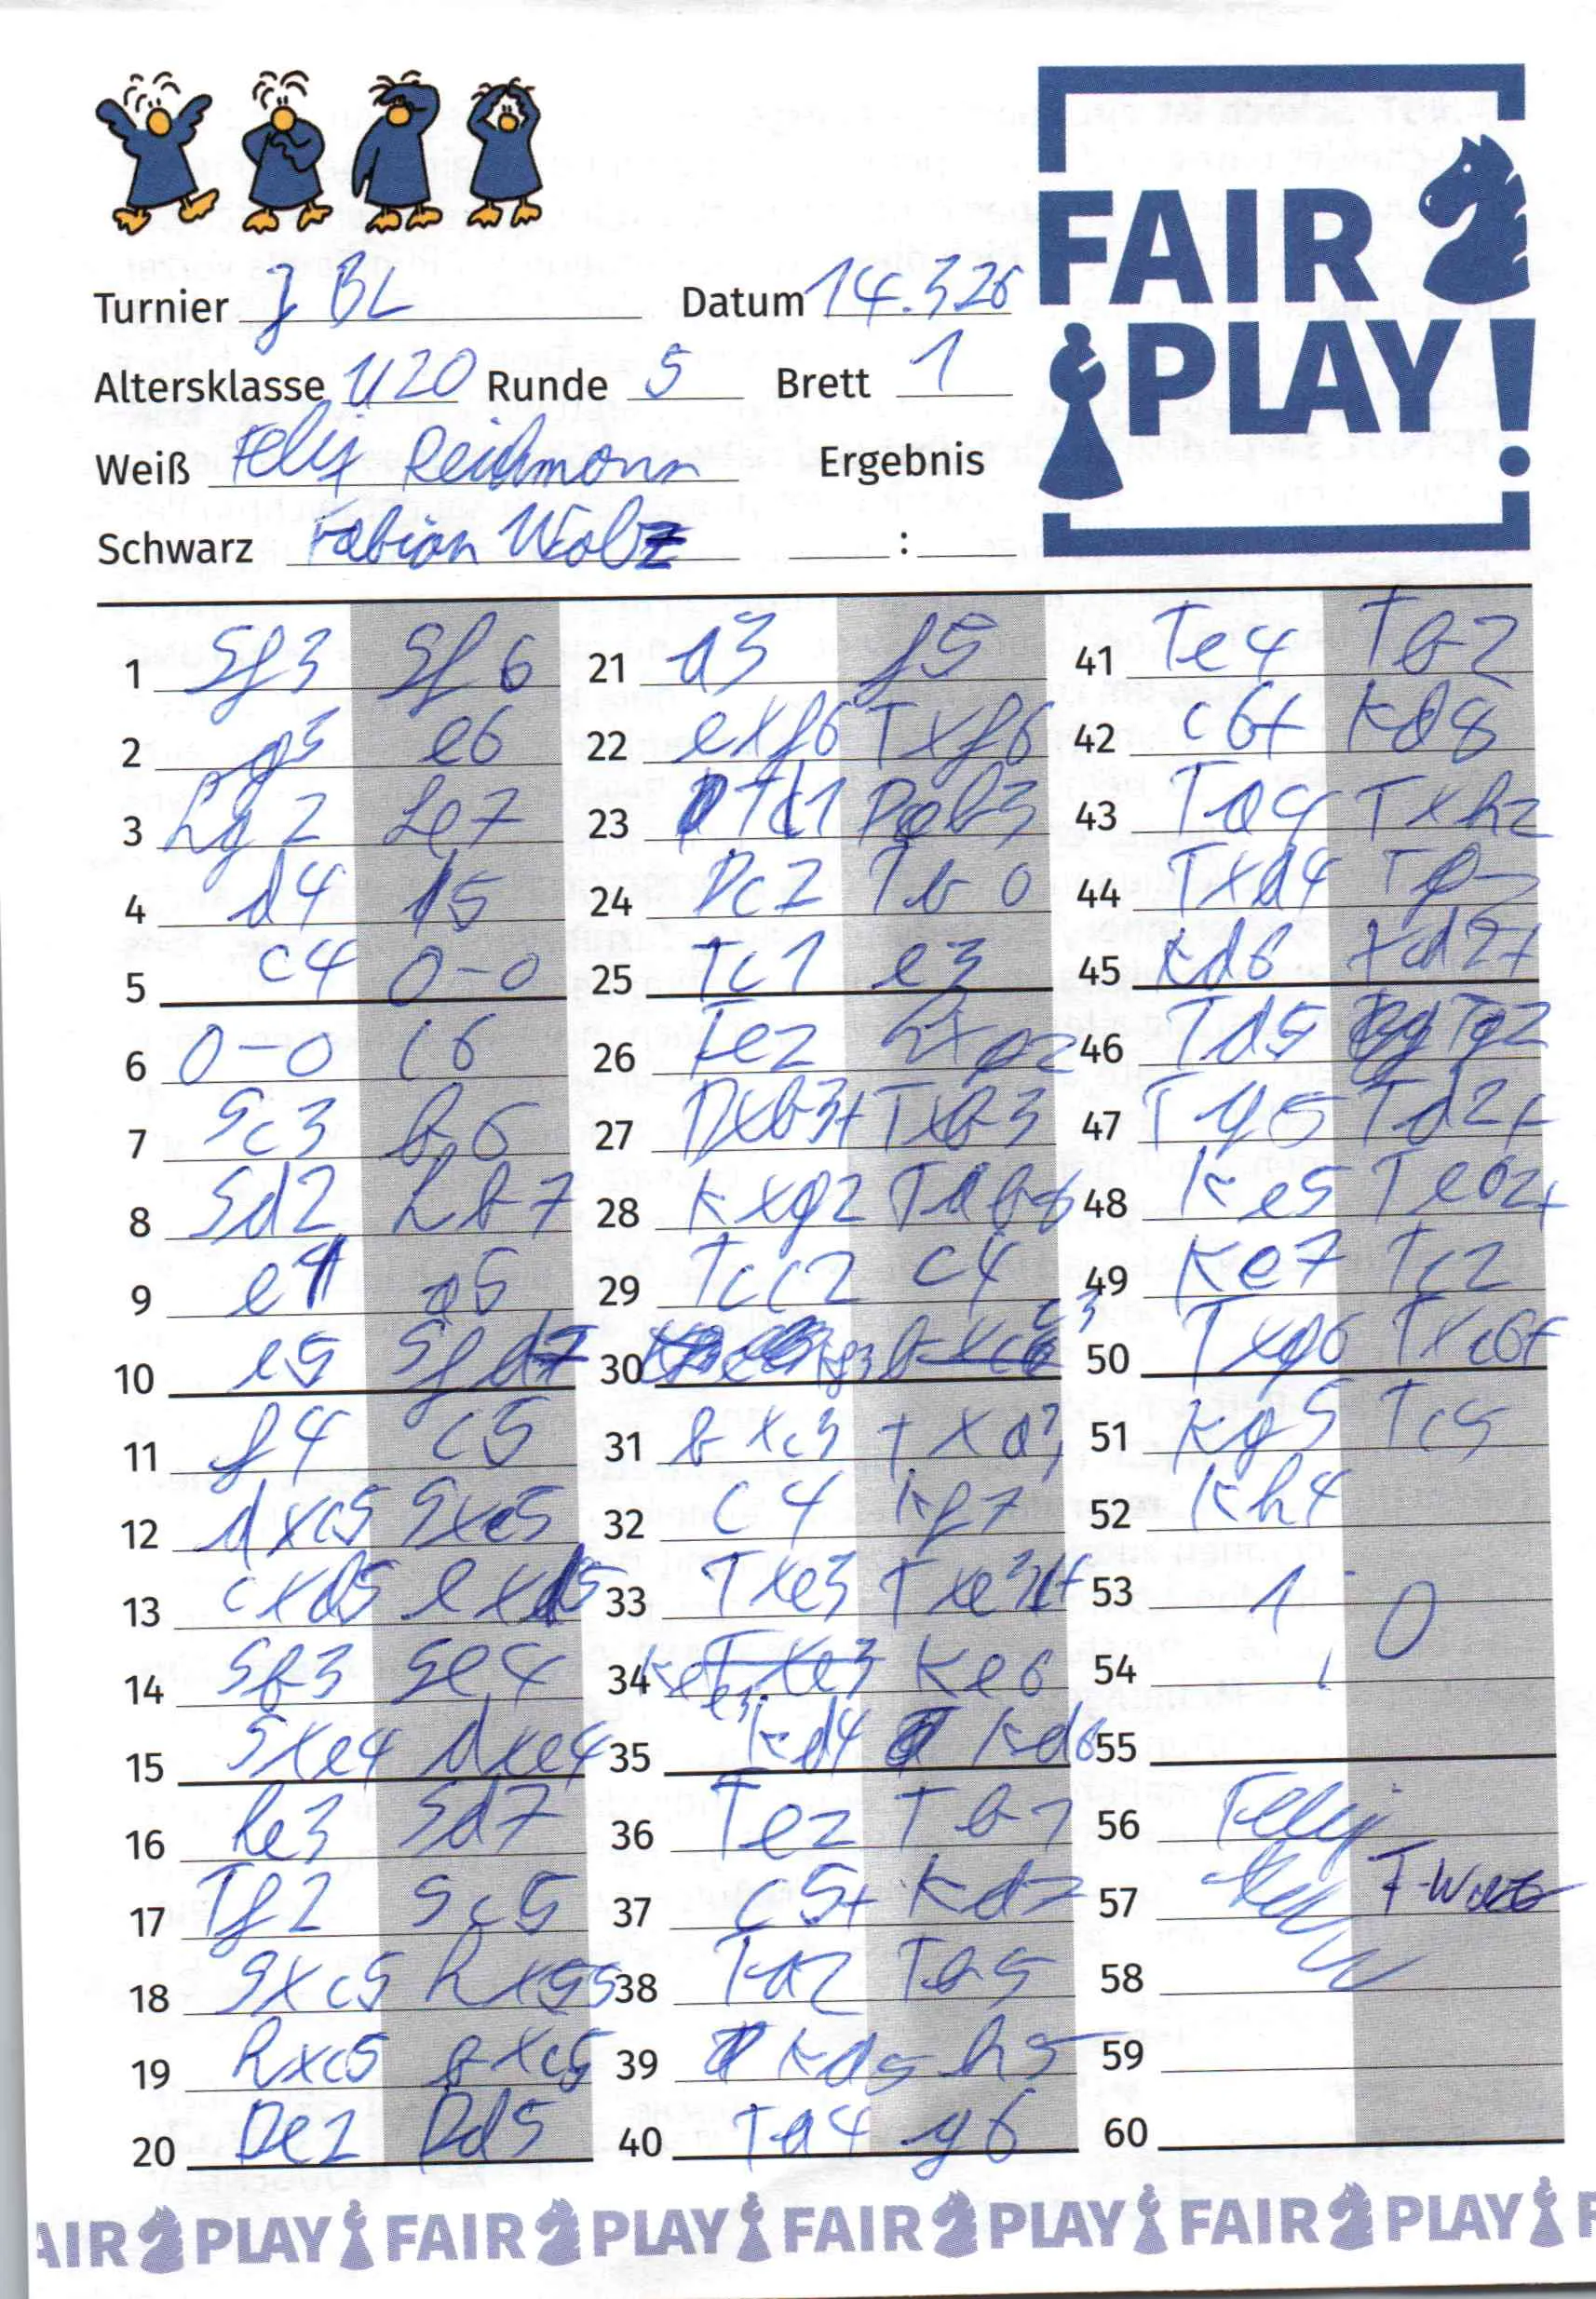 FAIR
PLAY!
Turnier J BL Datum 14.3.26
Altersklasse U20 Runde 5 Brett 1
Weiß Felix Reichmann Ergebnis
Schwarz Fabian Wolz :
1 Sf3 Sf6
2 g3 e6
3 Lg2 Le7
4 d4 d5
5 c4 0-0
6 0-0 c6
7 Sc3 b6
8 Sd2 Lb7
9 e4 a5
10 e5 Sfd7
11 f4 c5
12 dxc5 Sxc5
13 cxd5 exd5
14 Sb3 Se4
15 Sxe4 dxe4
16 Le3 Sd7
17 Tf2 Sc5
18 Sxc5 Lxc5
19 Lxc5 bxc5
20 De2 Dd5
21 a3 f5
22 exf6 Txf6
23 Td1 Db3
24 Dc2
25 Tc1 e3
26 Te2 Lxg2
27 Dxb3+ Txb3
28 Kxg2
29 Tcc2 c4
30 Kg3 c3
31 bxc3 Txa3
32 c4 Kf7
33 Txe3 Txe3+
34 Ke6
35 Kd4 Kd6
36 Te2 Tb7
37 c5+ Kd7
38 Ta2 Tb5
39 Kd5 h5
40 Ta4 g6
41 Te4 Tb2
42 c6+ Kd8
43 Txh2
44 Txd4
45 Kd6 Td2+
46 Td5 Tg2
47 Tg5 Td2+
48 Ke5 Te2+
49 Ke7 Tc2
50 Txg6 Txc6+
51 Kg5 Tc5
52 Kh4
53 1 0
54
55
56 Felix
57 F-Wolz
58
59
60
AIR PLAY FAIR PLAY FAIR PLAY FAIR PLAY F